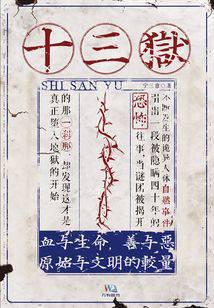 十三獄
SHI SAN YU
宁三章 著
不断发生的诡异人体自燃事件
引出一段被隐瞒四十年的
恐怖往事 当谜团被揭开
的那一刹那 却发现这才是
真正堕入地狱的开始
血与生命、善与恶
原始与文明的较量